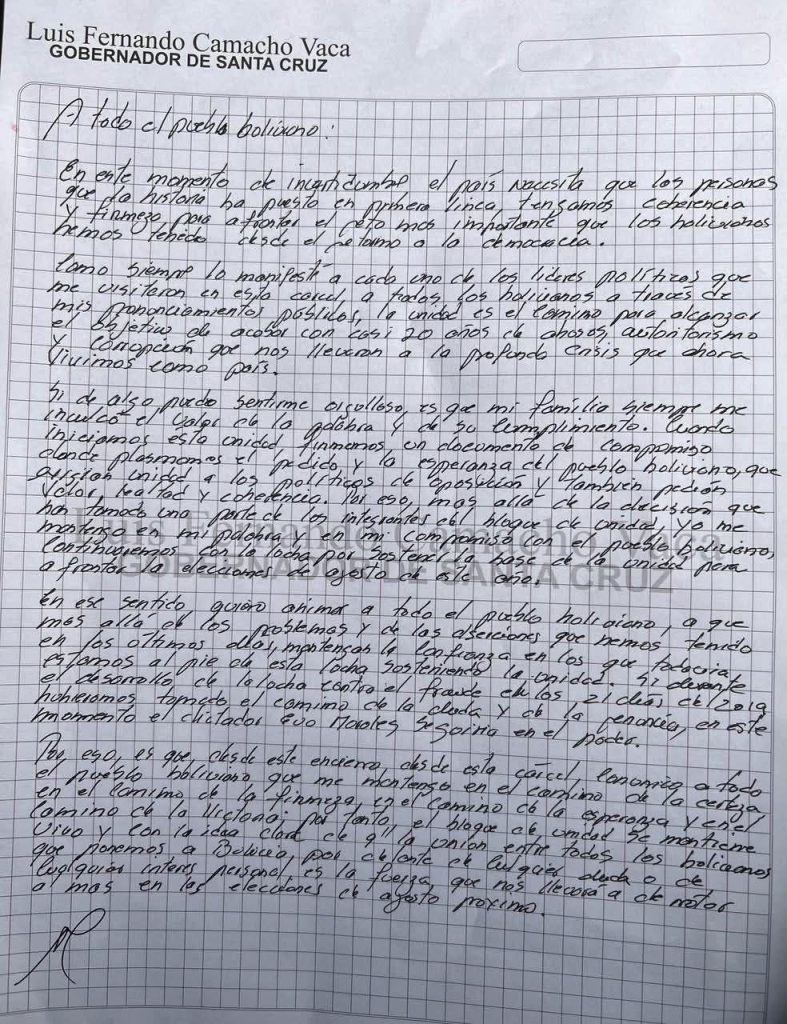 Luis Fernando Camacho Vaca
GOBERNADOR DE SANTA CRUZ
A todo el pueblo boliviano:
En este momento de incertidumbre el país necesita que las personas
que la historia ha puesto en primera linea tengamos coherencia
y firmeza para afrontar el reto mas importante que los bolivianos
hemos tenido desde el retorno a la democracia.
Como siempre lo manifesté a cada uno de los líderes políticos que
me visitaron en esta carcel, a todos los bolivianos a través de
mis pronunciamientos públicos, la unidad es el camino para alcanzar
el objetivo de acabar con casi 20 años de abusos, autoritarismo
y corrupción que nos llevaron a la profunda crisis que ahora
vivimos como país.
Si de algo puedo sentirme orgulloso, es que mi familia siempre me
inculcó el valor de la palabra y de su cumplimiento. Cuando
iniciamos esta unidad firmamos un documento de compromiso
donde plasmamos el pedido y la esperanza del pueblo boliviano, que
exigian unidad a los políticos de oposición y también pedían
valor, lealtad y coherencia. Por eso, mas allá de la decision que
han tomado una parte de los integrantes del bloque de unidad, yo me
mantengo en mi palabra y en mi compromiso con el pueblo boliviano,
continuaremos con la lucha por sostener la base de la unidad para
afrontar la elecciones de agosto de este año.
Luis Fernando Camacho Vaca
GOBERNADOR DE SANTA CRUZ
En ese sentido, quiero animar a todo el pueblo boliviano, a que
mas alla de los problemas y de las deserciones que hemos tenido
en los últimos días, mantengan la confianza en los que todavia
estamos al pie de esta lucha sosteniendo la unidad. Si durante
el desarrollo de la lucha contra el fraude en los 21 días del 2019
hubieramos tomado el camino de la duda y de la renuncia, en este
momento el dictador Evo Morales seguiria en el poder.
Por eso, es que, desde este encierro, desde esta cárcel, comunico a todo
el pueblo boliviano que me mantengo en el camino de la certeza
en el camino de la firmeza, en el camino de la esperanza y en el
camino de la victoria; por tanto, el bloque de unidad se mantiene
vivo y con la idea clara de q' la union entre todos los bolivianos
que ponemos a Bolivia, por delante de cualquier duda o de
cualquier interes personal, es la fuerza, que nos llevará a derrotar
a mas en las elecciones de agosto proximo.